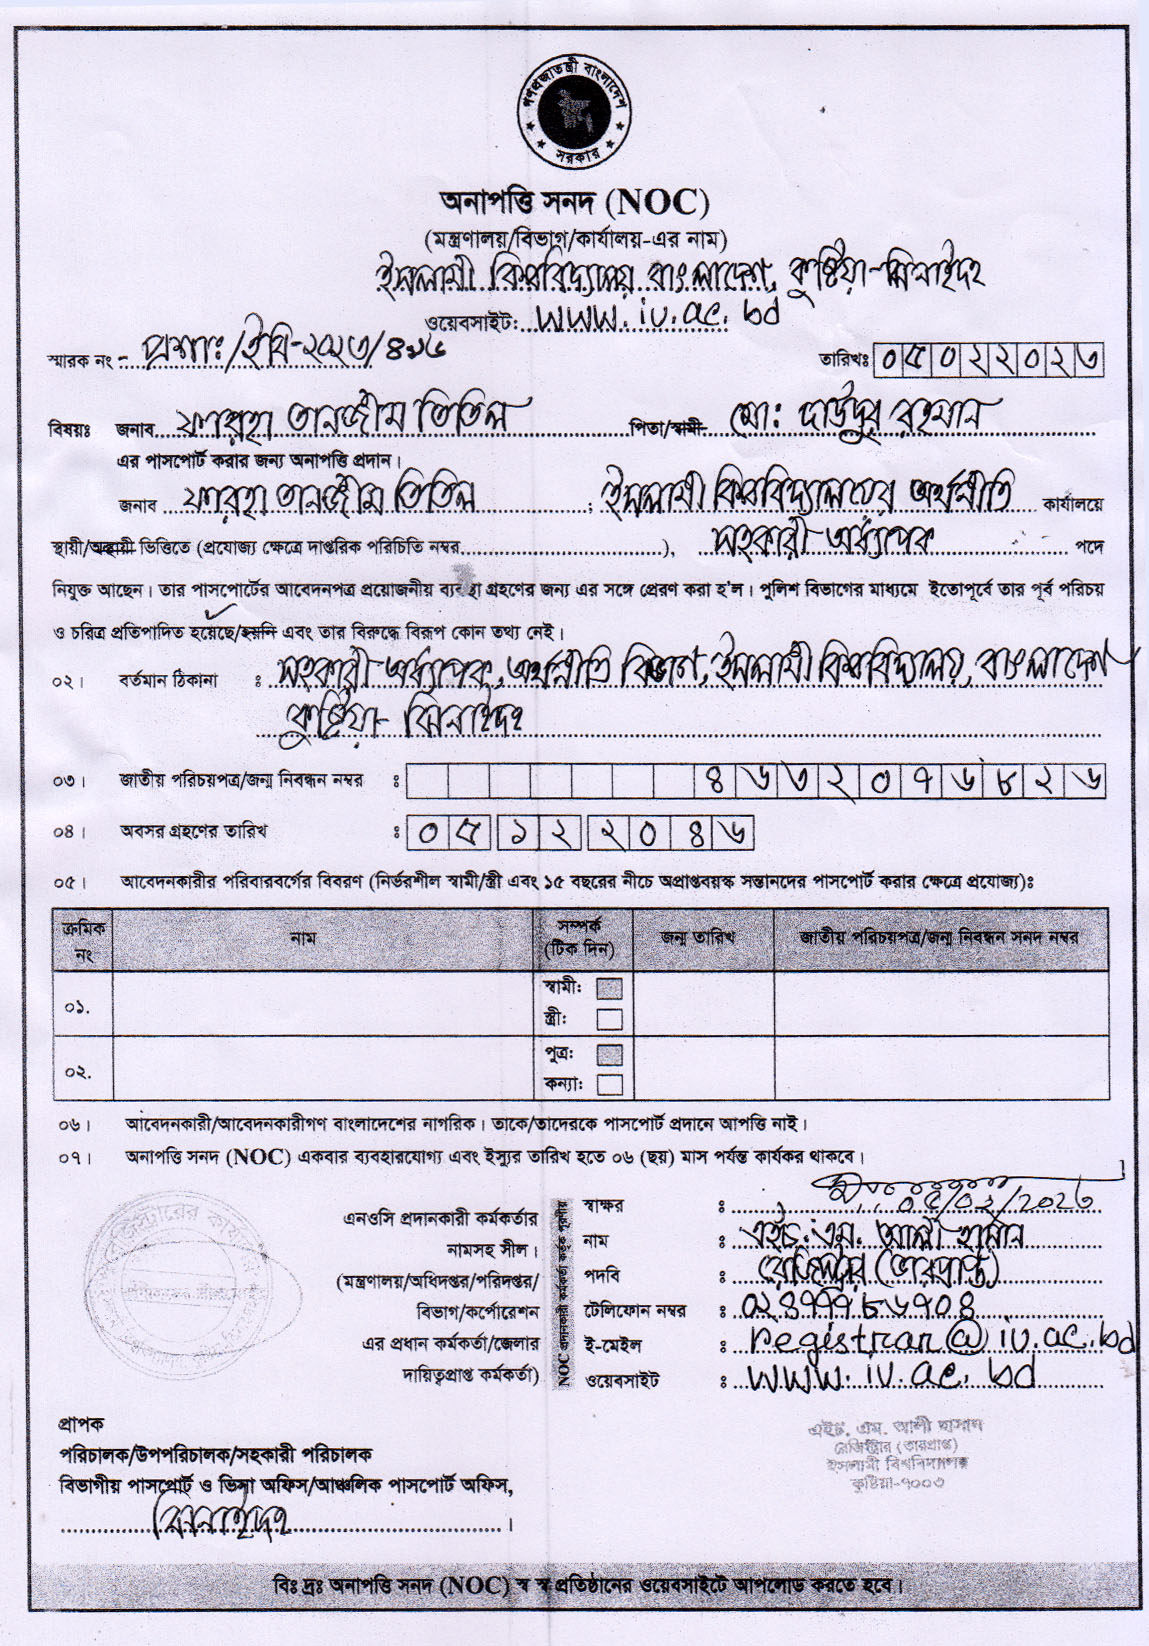 গণপ্রজাতন্ত্রী বাংলাদেশ
সরকার
অনাপত্তি সনদ (NOC)
(মন্ত্রণালয়/বিভাগ/কার্যালয়-এর নাম)
ইসলামী বিশ্ববিদ্যালয় বাংলাদেশ, কুষ্টিয়া-ঝিনাইদহ
ওয়েবসাইট: www.iu.ac.bd
স্মারক নং - প্রশাঃ/ইবি-২০২৩/৪৯৬
তারিখঃ ০৫০২২০২৩
বিষয়ঃ জনাব ফারহা তানজীম তিতিল পিতা/স্বামী- মো: দাউদুর রহমান
এর পাসপোর্ট করার জন্য অনাপত্তি প্রদান।
জনাব ফারহা তানজীম তিতিল ; ইসলামী বিশ্ববিদ্যালয়ের অর্থনীতি কার্যালয়ে
স্থায়ী/অস্থায়ী ভিত্তিতে (প্রযোজ্য ক্ষেত্রে দাপ্তরিক পরিচিতি নম্বর..............................), সহকারী অধ্যাপক পদে
নিযুক্ত আছেন। তার পাসপোর্টের আবেদনপত্র প্রয়োজনীয় ব্যবস্থা গ্রহণের জন্য এর সঙ্গে প্রেরণ করা হ'ল। পুলিশ বিভাগের মাধ্যমে ইতোপূর্বে তার পূর্ব পরিচয়
ও চরিত্র প্রতিপাদিত হয়েছে/হয়নি এবং তার বিরুদ্ধে বিরূপ কোন তথ্য নেই।
০২। বর্তমান ঠিকানা : সহকারী অধ্যাপক, অর্থনীতি বিভাগ, ইসলামী বিশ্ববিদ্যালয়, বাংলাদেশ
কুষ্টিয়া- ঝিনাইদহ
০৩। জাতীয় পরিচয়পত্র/জন্ম নিবন্ধন নম্বর : ৪৬৩২০৭৬৮২৬
০৪। অবসর গ্রহণের তারিখ : ০৫ ১২ ২০৪৬
০৫। আবেদনকারীর পরিবারবর্গের বিবরণ (নির্ভরশীল স্বামী/স্ত্রী এবং ১৫ বছরের নীচে অপ্রাপ্তবয়স্ক সন্তানদের পাসপোর্ট করার ক্ষেত্রে প্রযোজ্য)ঃ
ক্রমিক নং নাম সম্পর্ক (টিক দিন) জন্ম তারিখ জাতীয় পরিচয়পত্র/জন্ম নিবন্ধন সনদ নম্বর
০১. স্বামী:
স্ত্রী:
০২. পুত্র:
কন্যা:
০৬। আবেদনকারী/আবেদনকারীগণ বাংলাদেশের নাগরিক। তাকে/তাদেরকে পাসপোর্ট প্রদানে আপত্তি নাই।
০৭। অনাপত্তি সনদ (NOC) একবার ব্যবহারযোগ্য এবং ইস্যুর তারিখ হতে ০৬ (ছয়) মাস পর্যন্ত কার্যকর থাকবে।
এনওসি প্রদানকারী কর্মকর্তার
নামসহ সীল।
(মন্ত্রণালয়/অধিদপ্তর/পরিদপ্তর/
বিভাগ/কর্পোরেশন
এর প্রধান কর্মকর্তা/জেলার
দায়িত্বপ্রাপ্ত কর্মকর্তা)
NOC প্রদানকারী কর্মকর্তা কর্তৃক পূরণীয়
স্বাক্ষর : ০৫/০২/২০২৩
নাম : এইচ. এম. আলী হাসান
পদবি : রেজিস্ট্রার (ভারপ্রাপ্ত)
টেলিফোন নম্বর : ০২৪৭৭৭৮৬৭০৪
ই-মেইল : registrar@iu.ac.bd
ওয়েবসাইট : www.iu.ac.bd
এইচ. এম. আলী হাসান
রেজিস্ট্রার (ভারপ্রাপ্ত)
ইসলামী বিশ্ববিদ্যালয়
কুষ্টিয়া-৭০০৩
প্রাপক
পরিচালক/উপপরিচালক/সহকারী পরিচালক
বিভাগীয় পাসপোর্ট ও ভিসা অফিস/আঞ্চলিক পাসপোর্ট অফিস,
ঝিনাইদহ ।
বিঃ দ্রঃ অনাপত্তি সনদ (NOC) স্ব স্ব প্রতিষ্ঠানের ওয়েবসাইটে আপলোড করতে হবে।